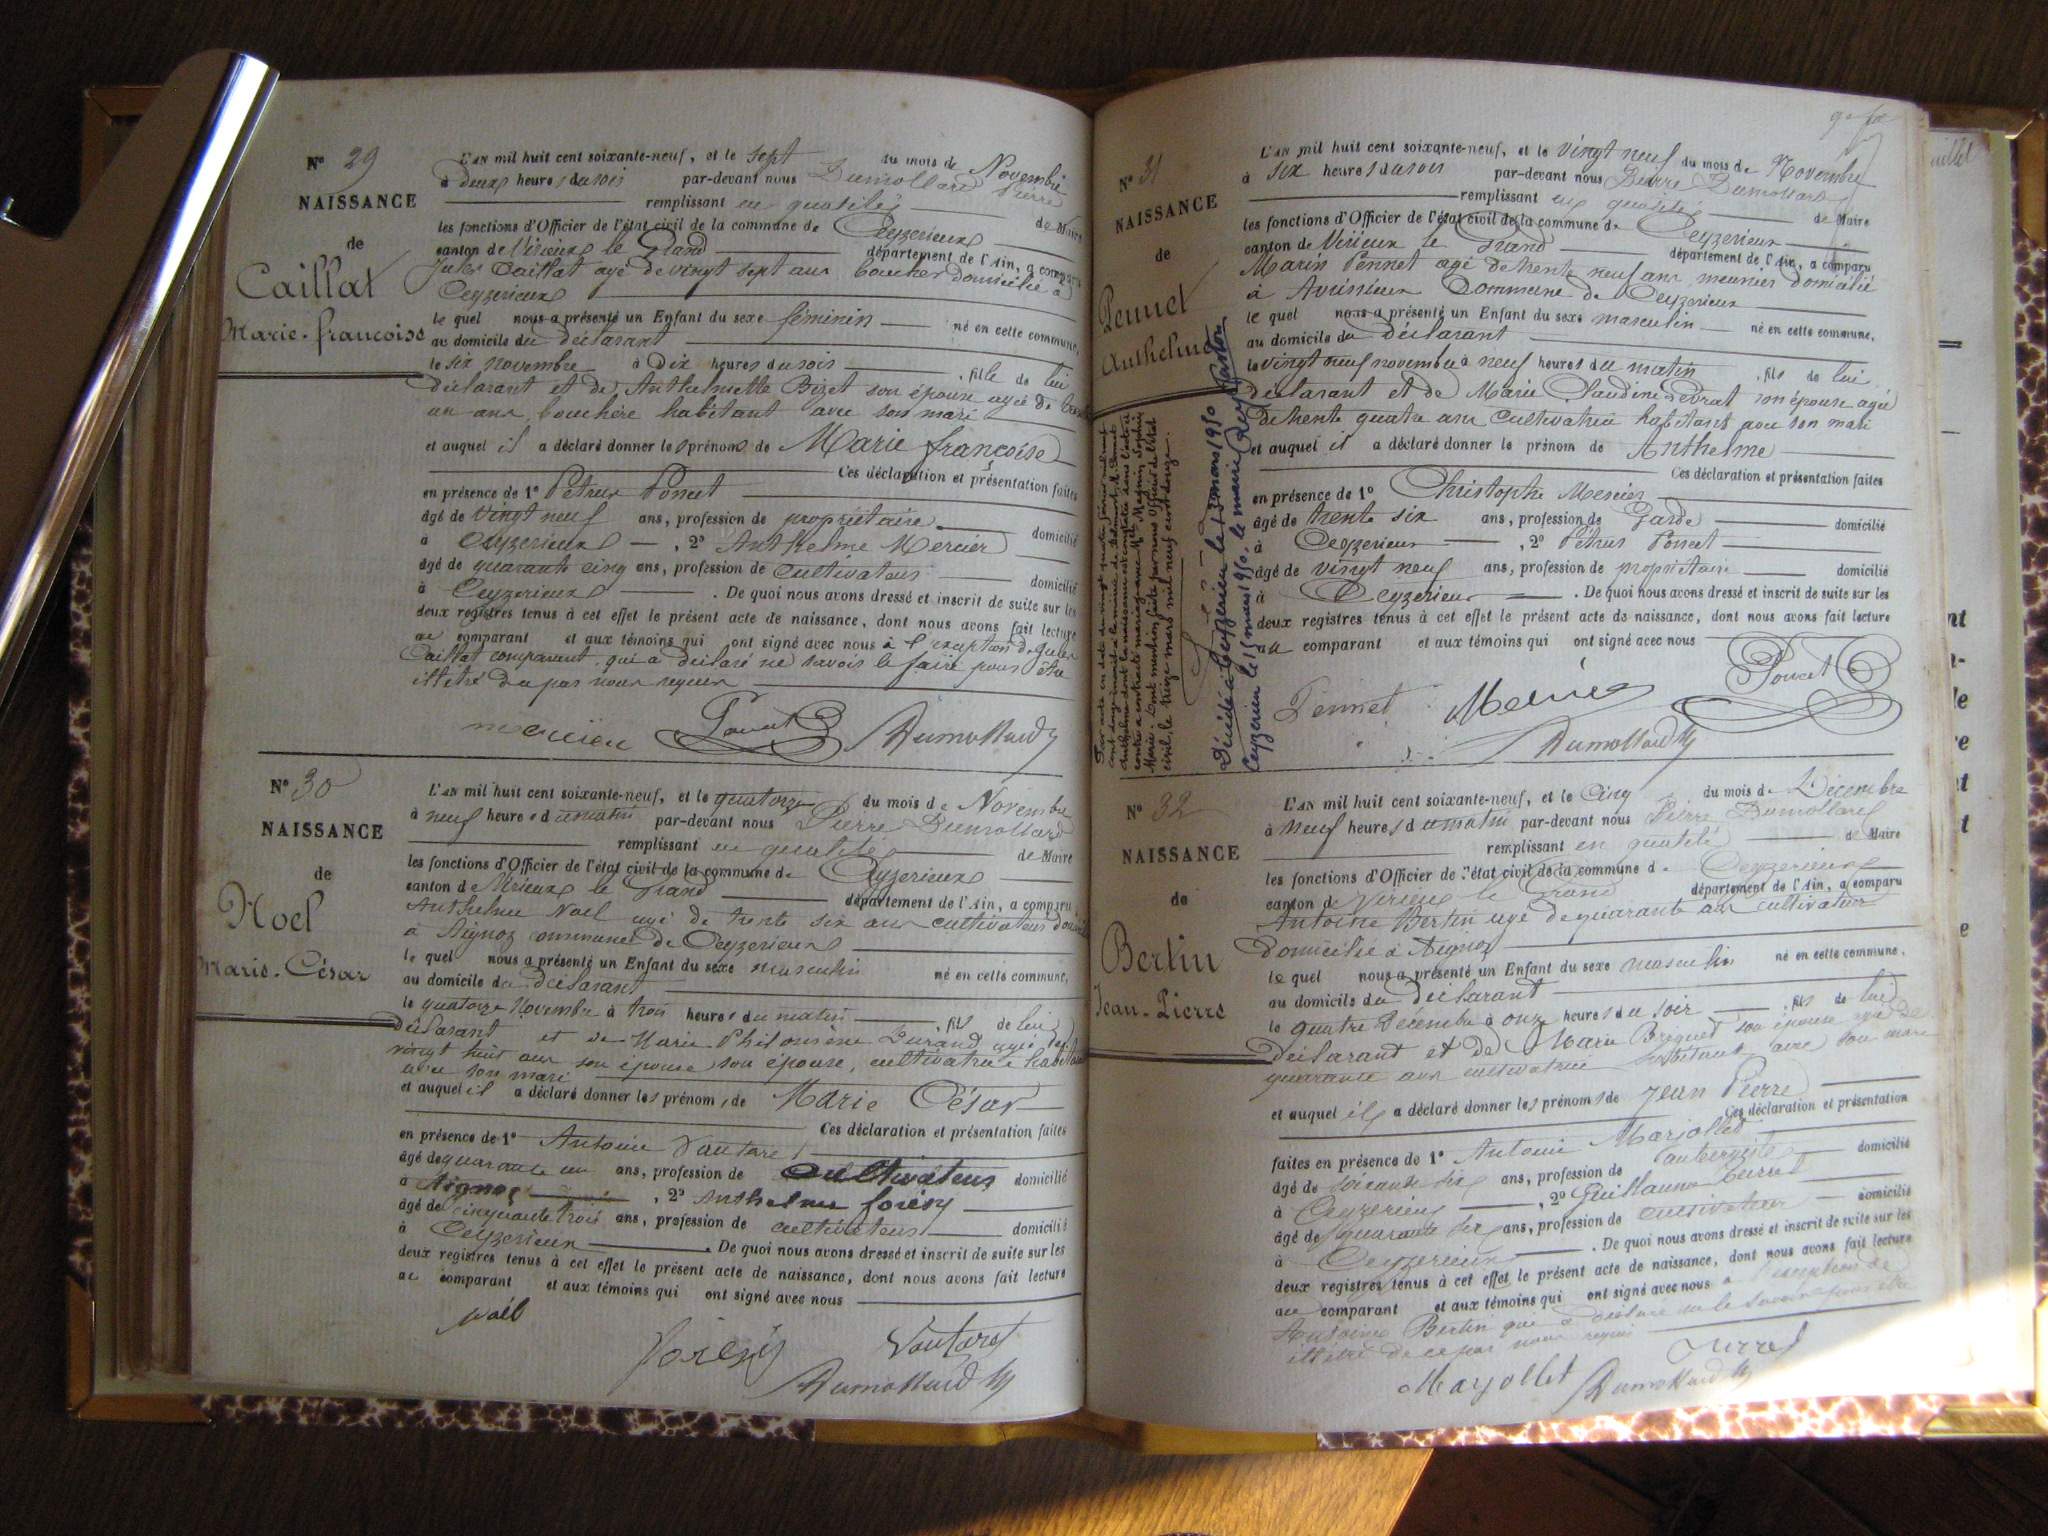 N° 29
NAISSANCE
de
Caillat
Marie-francoise
L'AN mil huit cent soixante-neuf, et le sept du mois de Novembre
à deux heures du soir par-devant nous Dumollard Pierre
remplissant en qualité de Maire
les fonctions d'Officier de l'état civil de la commune de Ceyzerieux
canton de Virieux le Grand département de l'Ain, a comparu
Jules Caillat agé de vingt sept ans boucher domicilié à
Ceyzerieux
le quel nous a présenté un Enfant du sexe féminin né en cette commune,
au domicile du déclarant
le six novembre à Dix heures du soir, fille de lui
déclarant et de Anthelmette Bizet son épouse agée de
un ans, bouchère habitant avec son mari
et auquel il a déclaré donner les prénoms de Marie françoise
Ces déclaration et présentation faites
en présence de 1° Petrus Poncet
âgé de vingt neuf ans, profession de propriétaire domicilié
à Ceyzerieux, 2° Anthelme Mercier
âgé de quarante cinq ans, profession de cultivateur domicilié
à Ceyzerieux. De quoi nous avons dressé et inscrit de suite sur les
deux registres tenus à cet effet le présent acte de naissance, dont nous avons fait lecture
au comparant et aux témoins qui ont signé avec nous à l'exception de Jules
Caillat comparant qui a déclaré ne savoir le faire pour être
illétré
Poncet Dumollard
N° 30
NAISSANCE
de
Noel
Marie-César
L'AN mil huit cent soixante-neuf, et le quatorze du mois de Novembre
à neuf heures du matin par-devant nous Pierre Dumollard
remplissant en qualité de Maire
les fonctions d'Officier de l'état civil de la commune de Ceyzerieux
canton de Virieux le Grand département de l'Ain, a comparu
Anthelme Noel agé de trente six ans cultivateur
à Aignoz commune de Ceyzerieux
le quel nous a présenté un Enfant du sexe masculin né en cette commune,
au domicile du déclarant
le quatorze Novembre à trois heures du matin, fils de lui
déclarant et de Marie Philomène Durand agée de
vingt huit ans son épouse son épouse, cultivatrice
avec son mari
et auquel il a déclaré donner les prénoms de Marie César
Ces déclaration et présentation faites
en présence de 1° Antoine Vautaret
âgé de quarante un ans, profession de cultivateur domicilié
à Aignoz, 2° Anthelme forésy
âgé de cinquante trois ans, profession de cultivateur domicilié
à Ceyzerieux. De quoi nous avons dressé et inscrit de suite sur les
deux registres tenus à cet effet le présent acte de naissance, dont nous avons fait lecture
au comparant et aux témoins qui ont signé avec nous
Noël
Vautaret
Dumollard
N° 31
NAISSANCE
de
Pennet
Anthelme
L'AN mil huit cent soixante-neuf, et le vingt neuf du mois de Novembre
à six heures du soir par-devant nous Pierre Dumollard
remplissant en qualité de Maire
les fonctions d'Officier de l'état civil de la commune de Ceyzerieux
canton de Virieux le Grand département de l'Ain, a comparu
Marin Pennet agé de trente neuf ans meunier domicilié
à Avrissieux Commune de Ceyzerieux
le quel nous a présenté un Enfant du sexe masculin né en cette commune,
au domicile du déclarant
le vingt neuf novembre à neuf heures du matin, fils de lui
déclarant et de Marie Claudine son épouse agée
de trente quatre ans cultivatrice habitant avec son mari
et auquel il a déclaré donner le prénom de Anthelme
Ces déclaration et présentation faites
en présence de 1° Christophe Mercier
âgé de trente six ans, profession de Garde domicilié
à Ceyzerieux, 2° Pétrus Poncet
âgé de vingt neuf ans, profession de propriétaire domicilié
à Ceyzerieux. De quoi nous avons dressé et inscrit de suite sur les
deux registres tenus à cet effet le présent acte de naissance, dont nous avons fait lecture
au comparant et aux témoins qui ont signé avec nous
Pennet Mercier Poncet
Dumollard
Décédé à Ceyzerieu le 13 mars 1950
Ceyzerieu le 15 mars 1950. le maire
N° 32
NAISSANCE
de
Bertin
Jean-Pierre
L'AN mil huit cent soixante-neuf, et le Cinq du mois de Décembre
à Neuf heures du matin par-devant nous Pierre Dumollard
remplissant en qualité de Maire
les fonctions d'Officier de l'état civil de la commune de Ceyzerieux
canton de Virieux le Grand département de l'Ain, a comparu
Antoine Bertin agé de quarante ans cultivateur
Domicilié à Aignoz
le quel nous a présenté un Enfant du sexe masculin né en cette commune,
au domicile du déclarant
le quatre Décembre à onze heures du soir, fils de lui
déclarant et de Marie Briquet son épouse agée de
quarante ans cultivatrice habitant avec son mari
et auquel il a déclaré donner les prénoms de Jean Pierre
Ces déclaration et présentation
faites en présence de 1° Antoine Marjollet
âgé de soixante six ans, profession de aubergiste domicilié
à Ceyzerieux, 2° Guillaume
âgé de quarante six ans, profession de cultivateur domicilié
à Ceyzerieux. De quoi nous avons dressé et inscrit de suite sur les
deux registres tenus à cet effet le présent acte de naissance, dont nous avons fait lecture
au comparant et aux témoins qui ont signé avec nous à l'exception de
Antoine Bertin qui a déclaré ne le savoir pour être
illétré de ce par nous requis
Marjollet Dumollard